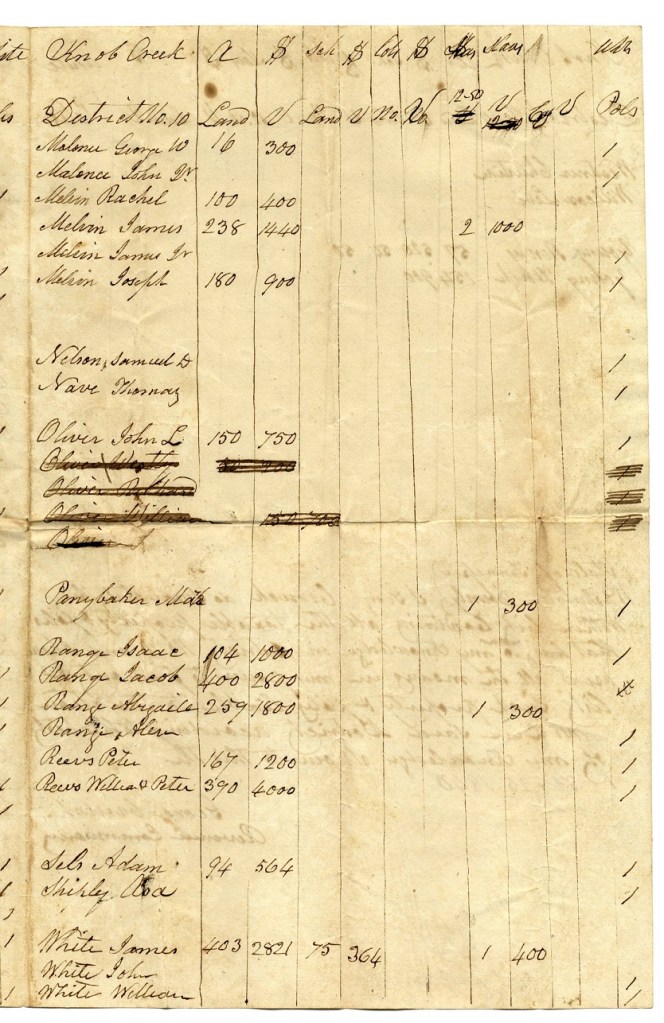 Knob Creek A $ Sch $ Cols $ Slaves
District No. 10 Land V Land V No. 1250 V V Pols
Malonee George W 16 300 1
Malonee John Jr 1
Melvin Rachel 100 400
Melvin James 238 1440 2 1000
Melvin James Jr 1
Melvin Joseph 180 900 1
Nelson, Samuel D 1
Nave Thomas 1
Oliver John L 150 750 1
Oliver Westly
Oliver Richard
Oliver William 150 700
Oliver
Panybaker 1 300 1
Range Isaac 104 1000 1
Range Jacob 400 2800
Range Abigaile 259 1800 1 300
Range Alen 1
Reevs Peter 167 1200 1
Reevs William & Peter 390 4000 1
Sels Adam 94 564 1
Shipley Asa 1
White James 403 2821 75 364 1 400
White John 1
White William 1